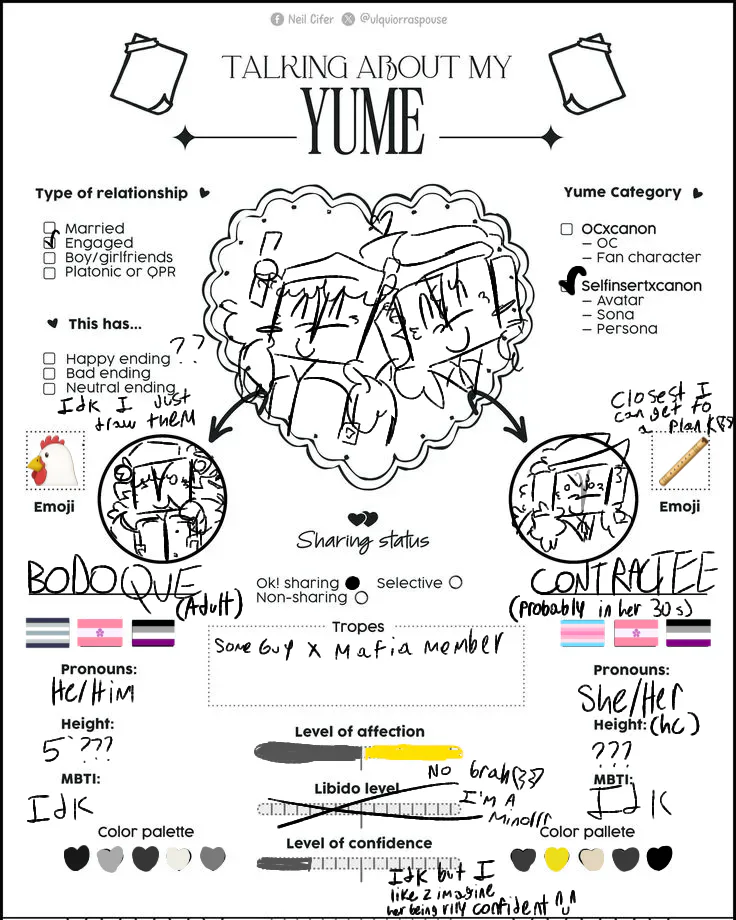 Neil Cifer @ulquiorraspouse
TALKING ABOUT MY
YUME
Type of relationship
Married
Engaged
Boy/girlfriends
Platonic or QPR
This has...
Happy ending ??
Bad ending
Neutral ending
Idk I just
draw them
Yume Category
OCxcanon
– OC
– Fan character
Selfinsertxcanon
– Avatar
– Sona
– Persona
closest I
can get to
a plank
Emoji
Emoji
Sharing status
Ok! sharing
Selective
Non-sharing
BODOQUE
(Adult)
Pronouns:
He/Him
Height:
5'???
MBTI:
Idk
Color palette
Tropes
Some Guy x Mafia member
Level of affection
Libido level
No brah
I'm A
Minorrr
Level of confidence
Idk but I
like 2 imagine
her being rlly confident
CONTRACTEE
(probably in her 30s)
Pronouns:
She/Her
Height: (hc)
???
MBTI:
Idk
Color pallete